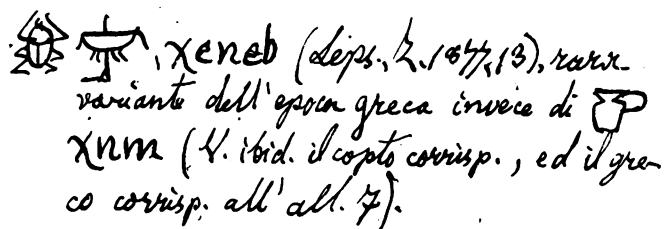 𓆣 , χeneb (Leps., Z. 1877, 13), rara
variante dell'epoca greca invece di
χnm (V. ibid. il copto corrisp., ed il gre-
co corrisp. all' all. 7).